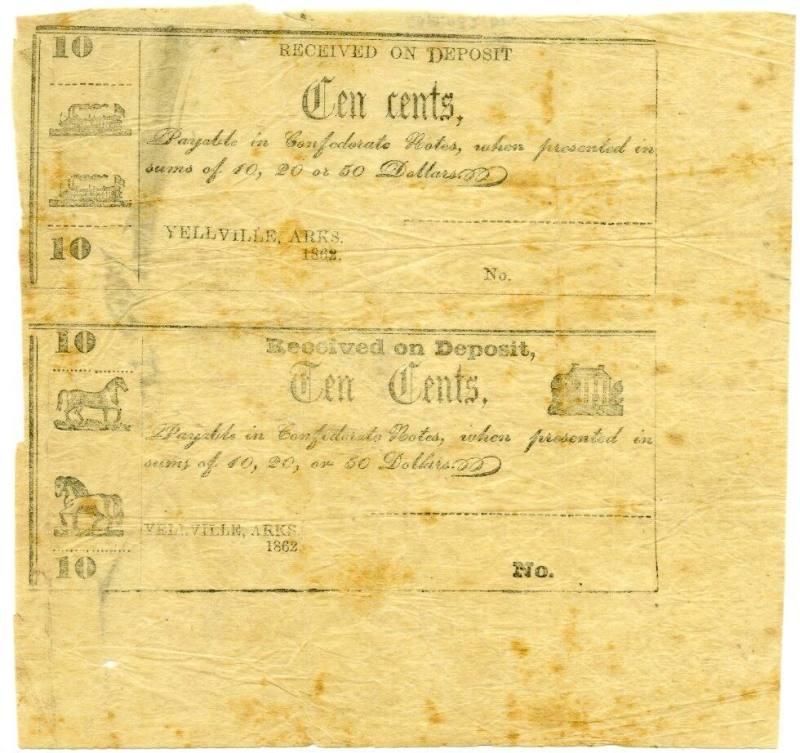 10
RECEIVED ON DEPOSIT
Ten cents,
Payable in Confederate Notes, when presented in
sums of 10, 20 or 50 Dollars.
10
YELLVILLE, ARKS.
1862.
No.
10
Received on Deposit,
Ten Cents,
Payable in Confederate Notes, when presented in
sums of 10, 20, or 50 Dollars.
YELLVILLE, ARKS.
1862
10
No.